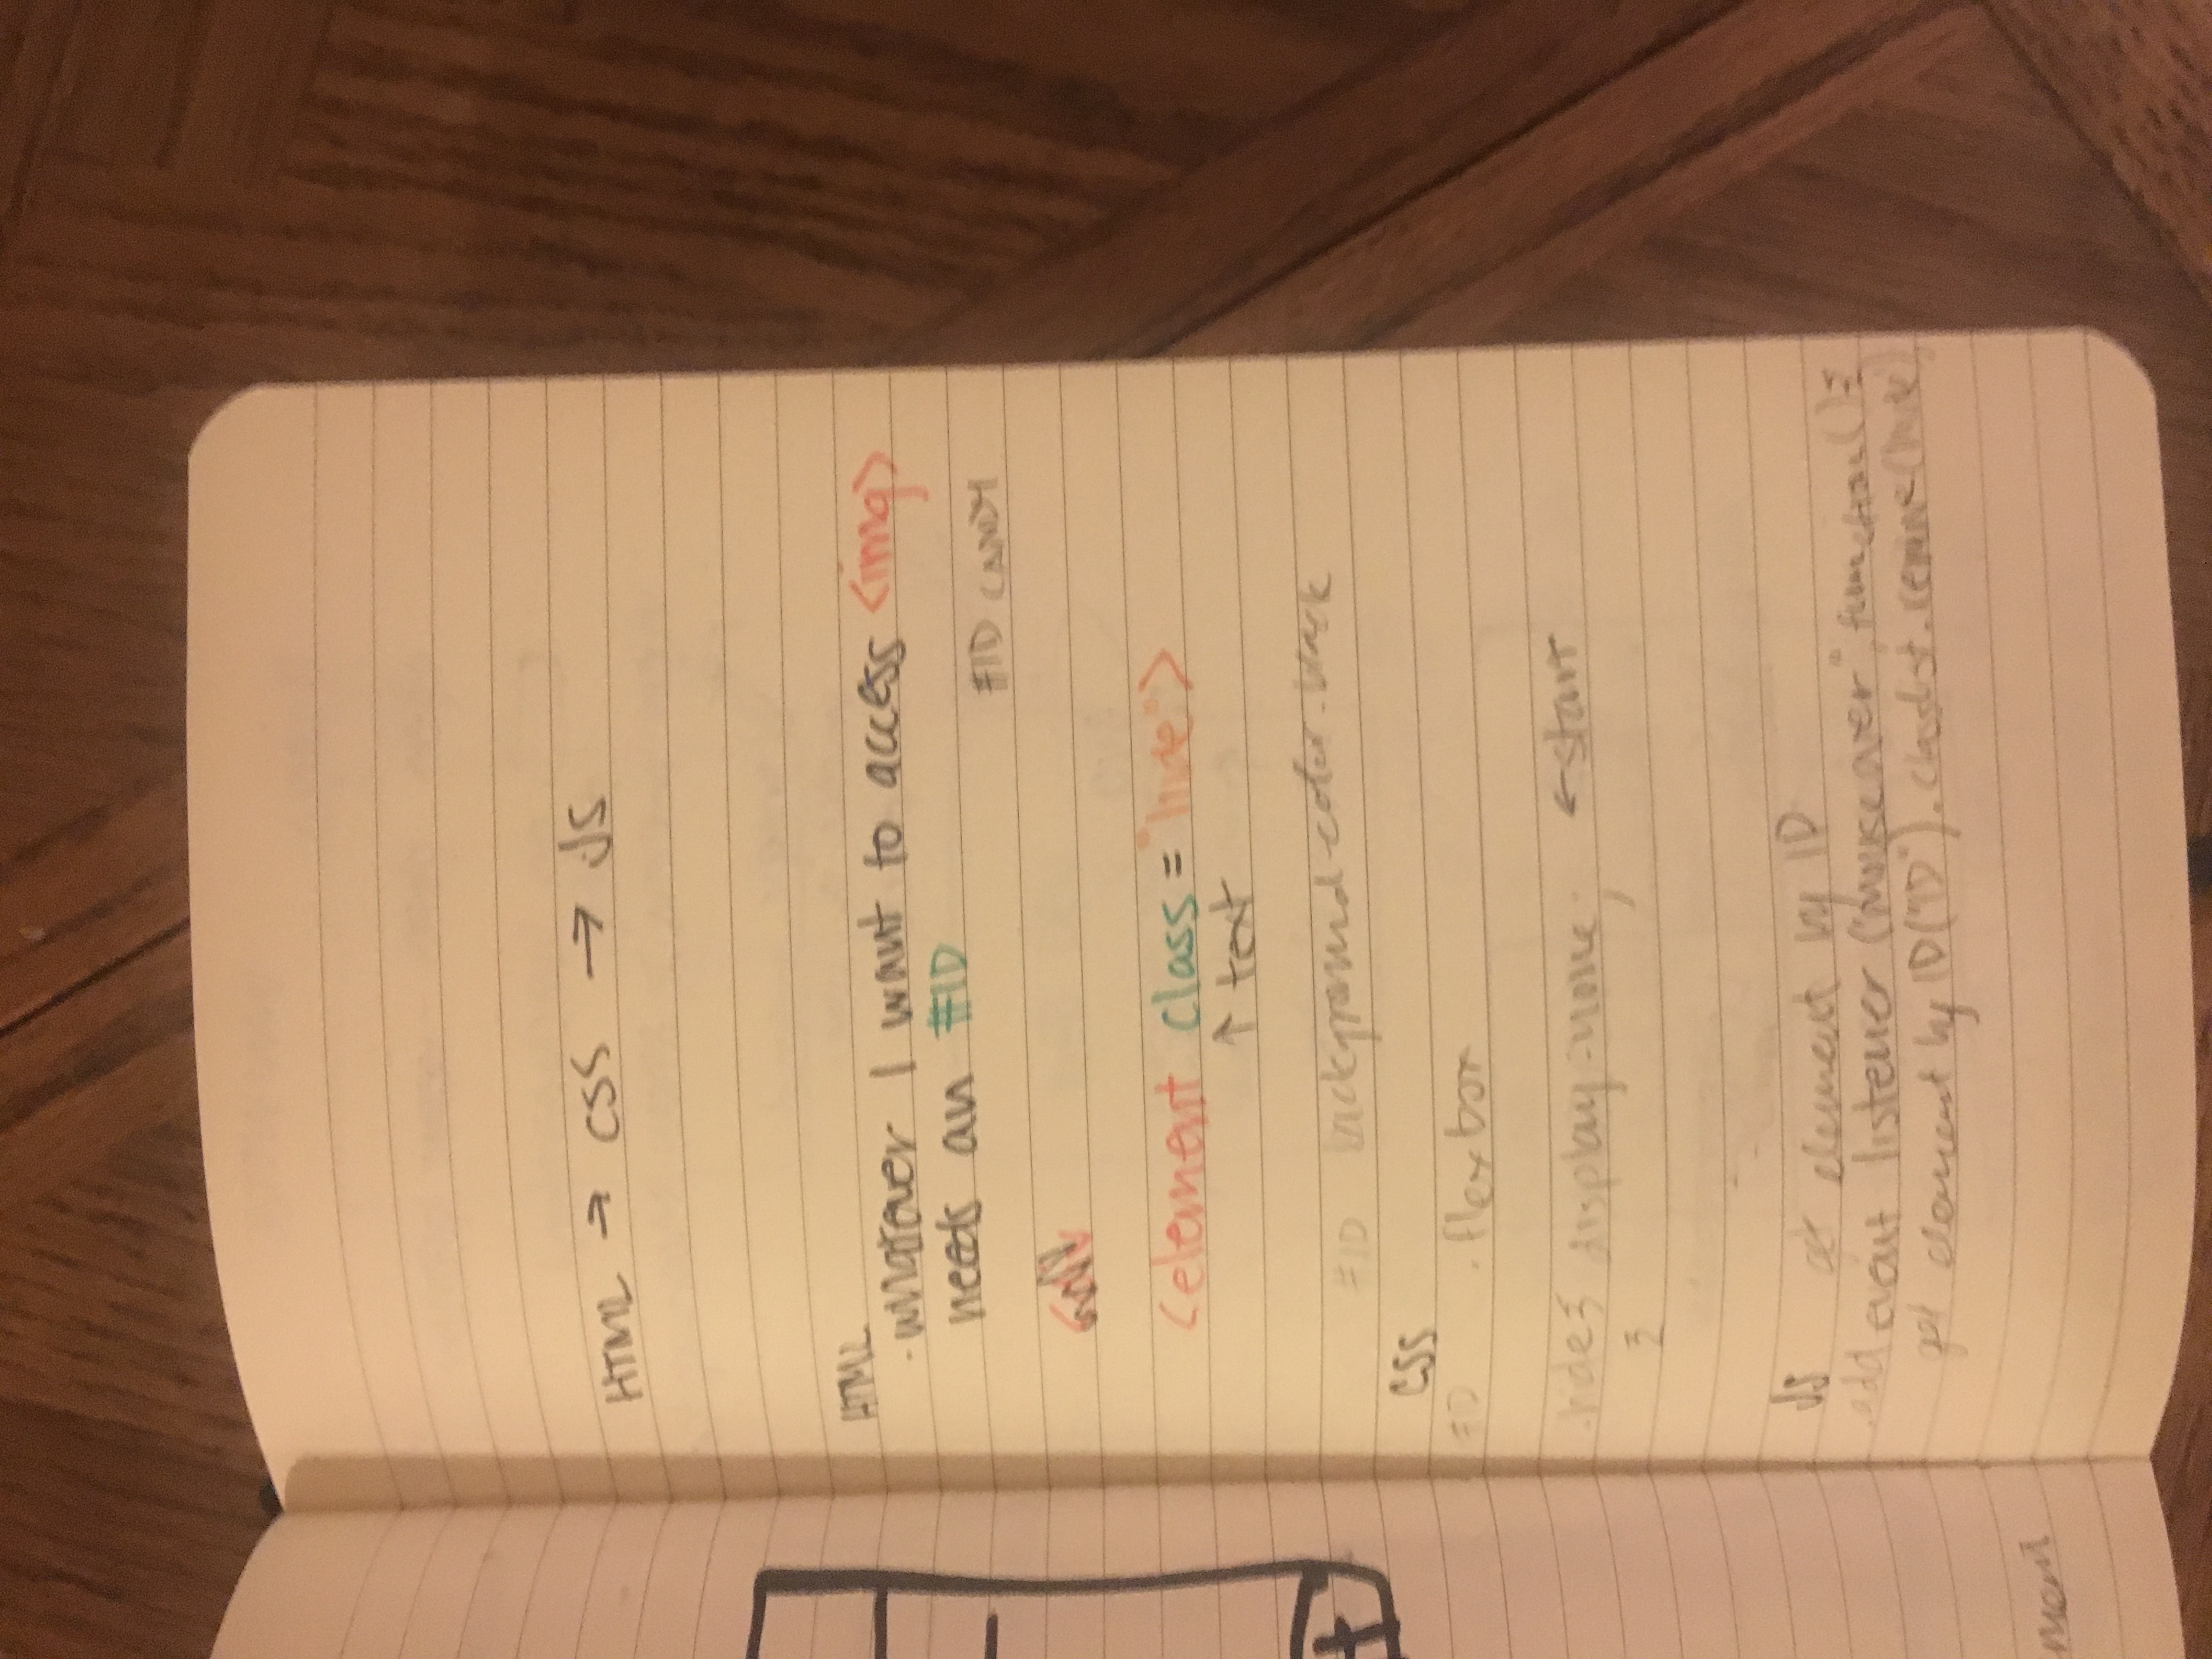 HTML → CSS → JS
HTML
· whatever I want to access <img>
needs an #ID
#ID CANDY
<div
<element class = "hide">
↑ text
#ID background-color: black
CSS
#ID · flexbox
.hide { display: none; ← start
}
JS get element by ID
.add event listener ("mouseover", function() {
get element by ID("ID").classlist.remove(hide)
ment